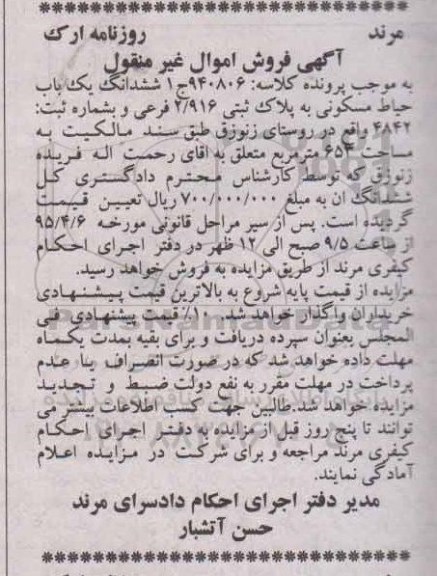 ************************************
مرند روزنامه ارک
آگهی فروش اموال غیر منقول
به موجب پرونده کلاسه: ۹۴۰۸۰۶ج۱ ششدانگ یک باب
حیاط مسکونی به پلاک ثبتی ۲/۹۱۶ فرعی و بشماره ثبت:
۴۸۴۲ واقع در روستای زنوزق طبق سند مالکیت به
مساحت ۶۵۳ مترمربع متعلق به اقای رحمت اله فریده
زنوزق که توسط کارشناس محترم دادگستری کل
ششدانگ ان به مبلغ ۷۰۰/۰۰۰/۰۰۰ ریال تعیین قیمت
گردیده است. پس از سیر مراحل قانونی مورخه ۹۵/۴/۶
از ساعت ۹/۵ صبح الی ۱۲ ظهر در دفتر اجرای احکام
کیفری مرند از طریق مزایده به فروش خواهد رسید.
مزایده از قیمت پایه شروع به بالاترین قیمت پیشنهادی
خریداران واگذار خواهد شد. ۱۰٪ قیمت پیشنهادی فی
المجلس بعنوان سپرده دریافت و برای بقیه بمدت یکماه
مهلت داده خواهد شد که در صورت انصراف یا عدم
پرداخت در مهلت مقرر به نفع دولت ضبط و تجدید
مزایده خواهد شد.طالبین جهت کسب اطلاعات بیشتر می
توانند تا پنج روز قبل از مزایده به دفتر اجرای احکام
کیفری مرند مراجعه و برای شرکت در مزایده اعلام
آمادگی نمایند.
مدیر دفتر اجرای احکام دادسرای مرند
حسن آتشبار
************************************
ParsNamadData